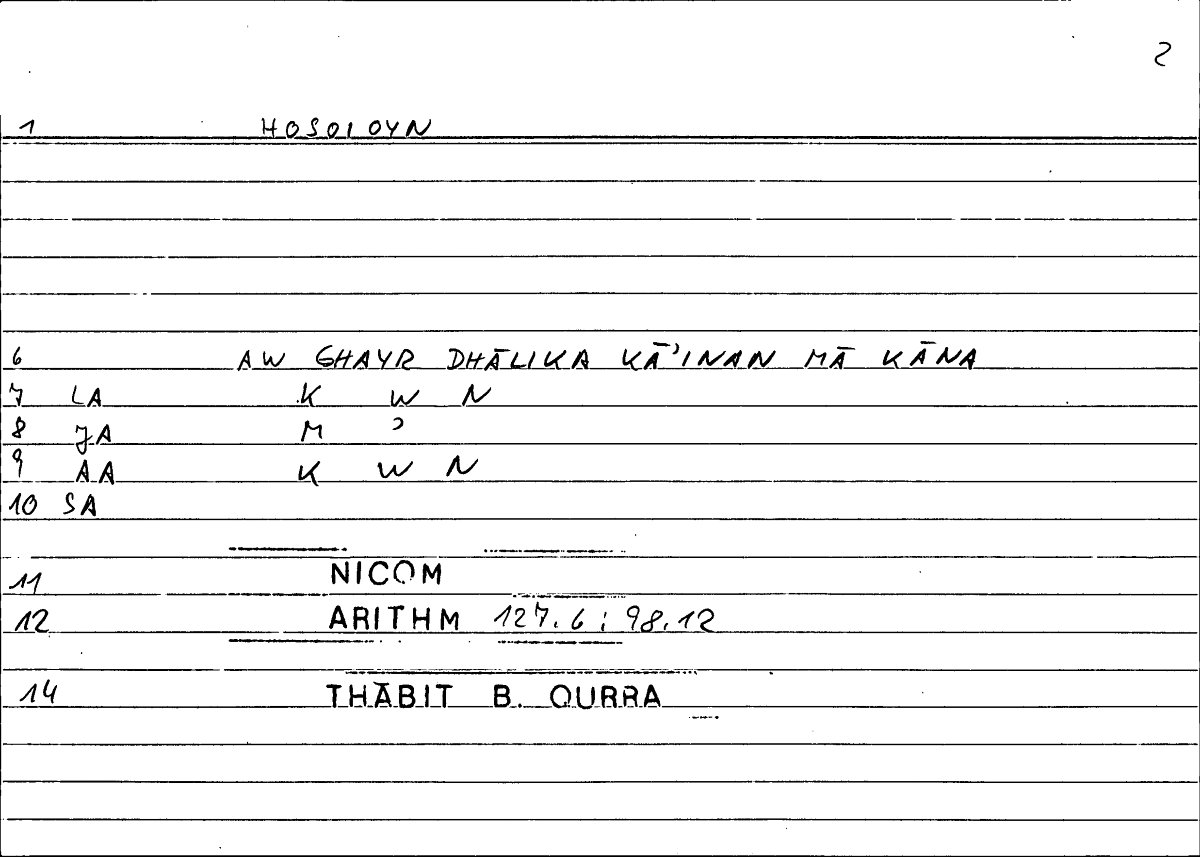 2
1 HOSOIOYN
6 AW GHAYR DHĀLIKA KĀʾINAN MĀ KĀNA
7 LA K W N
8 JA M ʾ
9 AA K W N
10 SA
11 NICOM
12 ARITHM 127.6; 98.12
14 THĀBIT B. QURRA